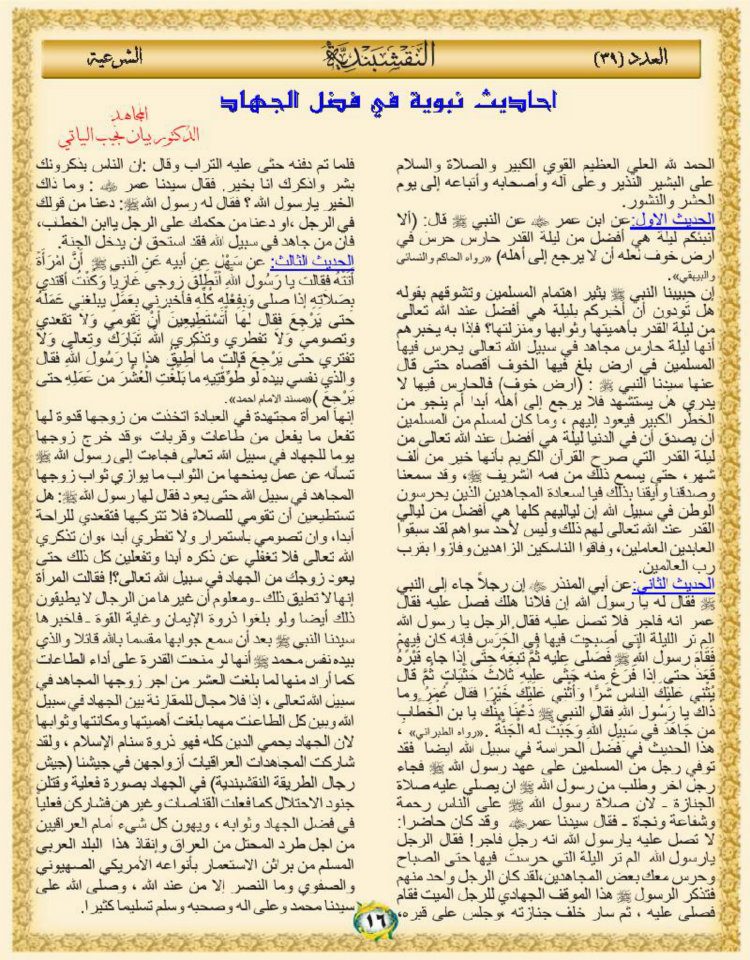 العدد (٣٩)
النقشبندية
الشرعية
احاديث نبوية في فضل الجهاد
المجاهد
الدكتور بيان نجيب الياتي
الحمد لله العلي العظيم القوي الكبير والصلاة والسلام
على البشير النذير وعلى آله وأصحابه وأتباعه إلى يوم
الحشر والنشور.
الحديث الاول:عن ابن عمر ﷺ عن النبي ﷺ قال: (ألا
أنبئكم ليلة هي أفضل من ليلة القدر حارس حرس في
ارض خوف لعله أن لا يرجع إلى أهله) «رواه الحاكم والنسائي
والبيهقي».
إن حبيبنا النبي ﷺ يثير اهتمام المسلمين وتشوقهم بقوله
هل تودون أن أخبركم بليلة هي أفضل عند الله تعالى
من ليلة القدر بأهميتها وثوابها ومنزلتها؟ فإذا به يخبرهم
أنها ليلة حارس مجاهد في سبيل الله تعالى يحرس فيها
المسلمين في ارض بلغ فيها الخوف أقصاه حتى قال
عنها سيدنا النبي ﷺ : (ارض خوف) فالحارس فيها لا
يدري هل يستشهد فلا يرجع إلى أهله أبدا أم ينجو من
الخطر الكبير فيعود إليهم ، وما كان لمسلم من المسلمين
أن يصدق أن في الدنيا ليلة هي أفضل عند الله تعالى من
ليلة القدر التي صرح القرآن الكريم بأنها خير من ألف
شهر، حتى يسمع ذلك من فمه الشريف ﷺ، وقد سمعنا
وصدقنا وأيقنا بذلك فيا لسعادة المجاهدين الذين يحرسون
الوطن في سبيل الله إن لياليهم كلها هي أفضل من ليالي
القدر عند الله تعالى لهم ذلك وليس لأحد سواهم لقد سبقوا
العابدين العاملين، وفاقوا الناسكين الزاهدين وفازوا بقرب
رب العالمين.
الحديث الثاني:عن أبي المنذر إن رجلاً جاء إلى النبي
ﷺ فقال له يا رسول الله إن فلانا هلك فصل عليه فقال
عمر انه فاجر فلا تصل عليه فقال الرجل يا رسول الله
الم تر الليلة التي أصبحت فيها في الحَرَس فإنه كان فِيهِمْ
فَقَامَ رسول اللهِ ﷺ فَصَلَّى عليه ثُمَّ تَبِعَهُ حتى إذا جاء قَبْرَهُ
قَعَدَ حتى إذا فَرَغَ منه حَثَى عليه ثَلاثَ حَثَيَاتٍ ثُمَّ قال
يُثْنِي عَلَيْكَ الناس شَرًّا وَأُثْنِي عَلَيْكَ خَيْرًا فقال عُمَرُ وما
ذاك يا رَسُولَ اللهِ فقال النبي ﷺ دَعْنَا مِنْكَ يا بن الخَطَّابِ
من جَاهَدَ في سَبِيلِ اللهِ وَجَبَتْ له الْجَنَّةُ .«رواه الطبراني» ،
هذا الحديث في فضل الحراسة في سبيل الله ايضا فقد
توفي رجل من المسلمين على عهد رسول الله ﷺ فجاء
رجل اخر وطلب من رسول الله ﷺ ان يصلي عليه صلاة
الجنازة - لان صلاة رسول الله ﷺ على الناس رحمة
وشفاعة ونجاة - فقال سيدنا عمر وقد كان حاضرا:
لا تصل عليه يارسول الله انه رجل فاجر! فقال الرجل
يارسول الله الم تر اليلة التي حرست فيها حتى الصباح
وحرس معك بعض المجاهدين،لقد كان الرجل واحد منهم
فتذكر الرسول ﷺ هذا الموقف الجهادي للرجل الميت فقام
فصلى عليه ، ثم سار خلف جنازته وجلس على قبره،
فلما تم دفنه حثى عليه التراب وقال :ان الناس يذكرونك
بشر واذكرك انا بخير. فقال سيدنا عمر : وما ذاك
الخير يارسول الله ؟ فقال له رسول الله ﷺ: دعنا من قولك
في الرجل ،او دعنا من حكمك على الرجل ياابن الخطاب،
فان من جاهد في سبيل الله فقد استحق ان يدخل الجنة.
الحديث الثالث: عن سَهْلٍ عن أبيه عَنِ النبي ﷺ أَنَّ امْرَأَةً
أَتَتْهُ فقالت يا رَسُولَ اللهِ انْطَلَقَ زوجي غازيا وَكُنْتُ أقتدي
بِصَلاتِهِ إذا صلى وَبِفِعْلِهِ كُلِّهِ فأخبرني بِعَمَلٍ يبلغني عَمَلَهُ
حتى يَرْجَعَ فقال لها أَتَسْتَطِيعِينَ أَنْ تقومي وَلاَ تقعدي
وتصومي وَلاَ تفطري وتذكري اللَّهَ تَبَارَكَ وَتعالى وَلاَ
تفتري حتى يَرْجَعَ قالت ما أُطِيقُ هذا يا رَسُولَ اللهِ فقال
والذي نفسي بيده لَو طُوِّقْتِيهِ ما بَلَغْتِ الْعُشْرَ من عَمَلِهِ حتى
يَرْجِعَ )«مسند الامام احمد».
إنها امرأة مجتهدة في العبادة اتخذت من زوجها قدوة لها
تفعل ما يفعل من طاعات وقربات ،وقد خرج زوجها
يوما للجهاد في سبيل الله تعالى فجاءت إلى رسول الله ﷺ
تسأله عن عمل يمنحها من الثواب ما يوازي ثواب زوجها
المجاهد في سبيل الله حتى يعود فقال لها رسول الله ﷺ: هل
تستطيعين أن تقومي للصلاة فلا تتركيها فتقعدي للراحة
أبدا، وان تصومي باستمرار ولا تفطري أبدا ،وان تذكري
الله تعالى فلا تغفلي عن ذكره أبدا وتفعلين كل ذلك حتى
يعود زوجك من الجهاد في سبيل الله تعالى؟! فقالت المرأة
إنها لا تطيق ذلك -ومعلوم أن غيرها من الرجال لا يطيقون
ذلك أيضا ولو بلغوا ذروة الإيمان وغاية القوة - فاخبرها
سيدنا النبي ﷺ بعد أن سمع جوابها مقسما بالله قائلا والذي
بيده نفس محمد ﷺ أنها لو منحت القدرة على أداء الطاعات
كما أراد منها لما بلغت العشر من اجر زوجها المجاهد في
سبيل الله تعالى ، إذا فلا مجال للمقارنة بين الجهاد في سبيل
الله وبين كل الطاعت مهما بلغت أهميتها ومكانتها وثوابها
لان الجهاد يحمي الدين كله فهو ذروة سنام الإسلام ، ولقد
شاركت المجاهدات العراقيات أزواجهن في جيشنا (جيش
رجال الطريقة النقشبندية) في الجهاد بصورة فعلية وقتلن
جنود الاحتلال كما فعلت القناصات وغيرهن فشاركن فعليا
في فضل الجهاد وثوابه ، ويهون كل شيء أمام العراقيين
من اجل طرد المحتل من العراق وإنقاذ هذا البلد العربي
المسلم من براثن الاستعمار بأنواعه الأمريكي الصهيوني
والصفوي وما النصر إلا من عند الله ، وصلى الله على
سيدنا محمد وعلى اله وصحبه وسلم تسليما كثيرا.
١٦